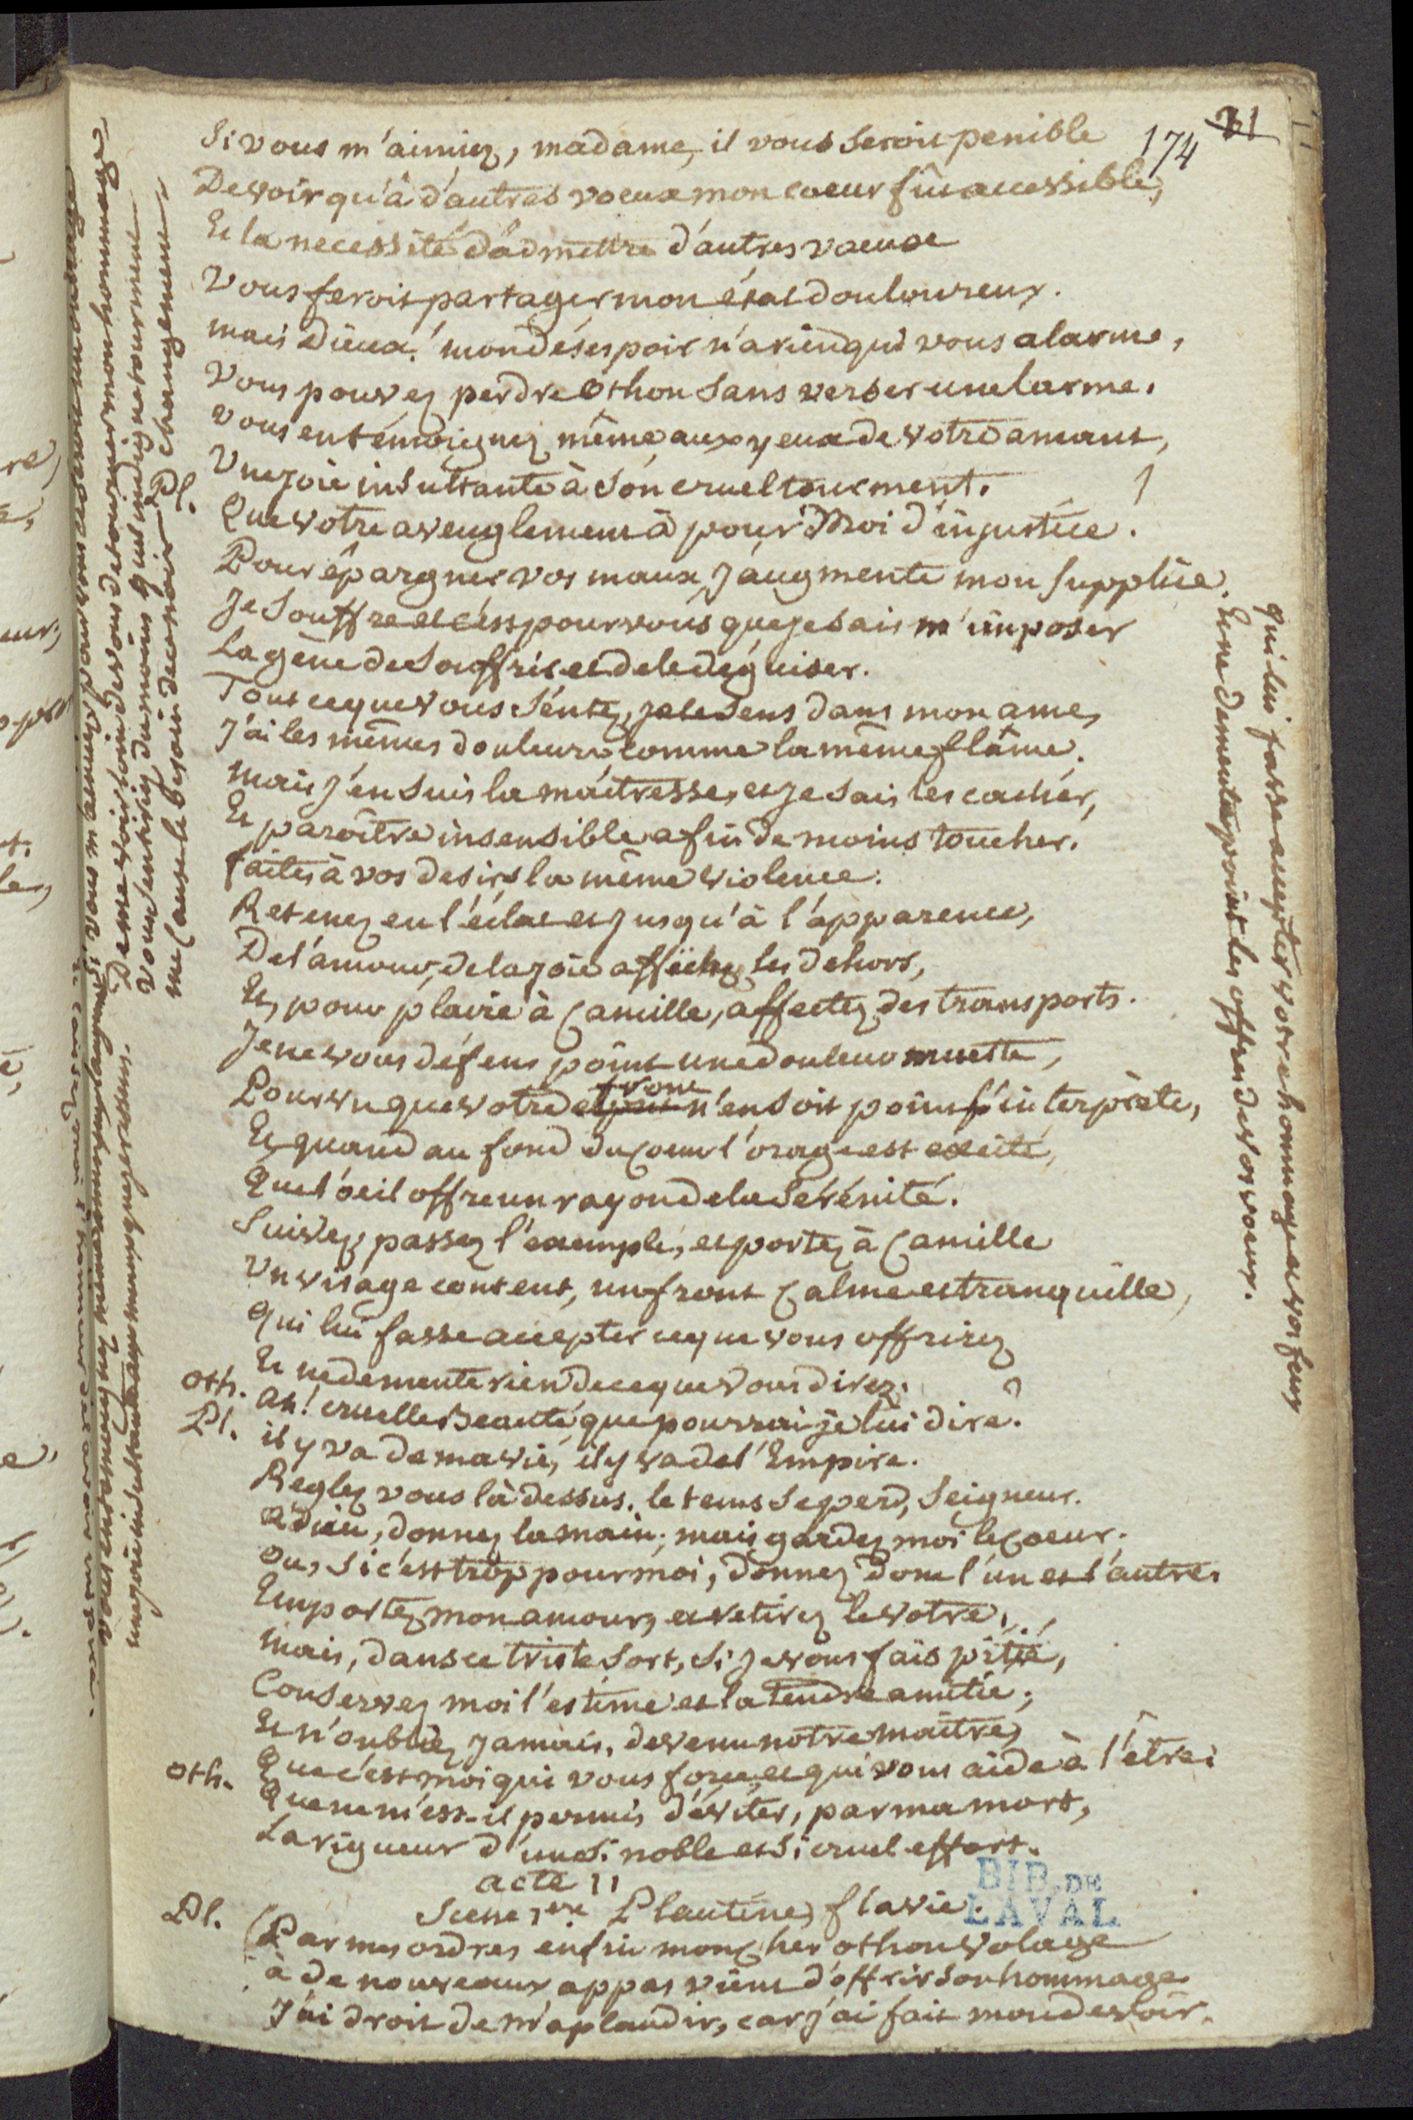 174
21
Si vous m'aimiez, madame, il vous seroit penible
De voir qu'à d'autres voeux mon coeur fût accessible,
Et la necessité d'admettre d'autres voeux
Vous feroit partager mon état douloureux.
mais Dieux! mon désespoir n'a rien qui vous alarme,
Vous pouvez perdre Othon sans verser une larme.
Vous en témoignez même, aux yeux de votre amant,
Une joie insultante à son cruel tourment.
Pl.
Que votre aveuglement à pour moi d'injustice!
Pour épargner vos maux, j'augmente mon supplice.
Je souffre et c'est pour vous que je sais m'imposer
La gêne de souffrir et de le déguiser.
Tout ce que vous sentez, je le sens dans mon ame,
J'ai les mêmes douleurs comme la même flâme.
mais j'en suis la maitresse, et je sais les cacher,
Et paroître insensible afin de moins toucher.
faites à vos desirs la même violence.
Retenez en l'éclat et jusqu'à l'apparence,
De l'amour, de la joie affichez les dehors,
Et, pour plaire à Camille, affectez des transports.
Je ne vous défens point une douleur muette,
Pourvu que votre front n'en soit point l'interprète,
Et quand au fond du coeur l'orage est excité,
Que l'oeil offre un rayon de la sérénité.
Suivez, passez l'exemple, et portez à Camille
Un visage content, un front calme et tranquille,
Qui lui fasse accepter ce que vous offrirez
Et ne demente rien de ce que vous direz.
Oth. Ah! cruelle beauté, que pourrai-je lui dire?
Pl. il y va de ma vie, il y va de l'Empire.
Reglez vous là dessus. le tems se perd, Seigneur.
Adieu, donnez la main; mais gardez moi le coeur.
ou, si c'est trop pour moi, donnez donc l'un et l'autre.
Emportez mon amour, et retirez le votre.
Mais, dans ce triste sort, si je vous fais pitié,
Conservez moi l'estime et la tendre amitié;
Et n'oubliez jamais, devenu notre maître,
Que c'est moi qui vous force, et qui vous aide à l'être.
Oth. Que ne m'est-il permis d'éviter, par ma mort,
La rigueur d'un si noble et si cruel effort.
acte II
Scene 1ere Plautine, flavie.
Pl. Par mes ordres enfin mon cher othon volage
à de nouveaux appas vient d'offrir son hommage
J'ai droit de m'aplaudir, car j'ai fait mon devoir.
BIB. DE
LAVAL
qui lui fasse accepter votre hommage et vos feux
Et ne demente point les offres de vos voeux.
De me voir loin de vous detourner mon hommage
vous sentiriez du moins quelque tourment
me cause le besoin de ce noir changement